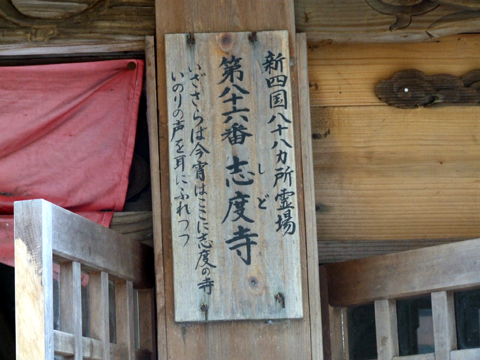 新四国八十八カ所霊場
第八十六番 志度寺
しど
いざさらは今宵はここに志度の寺
いのりの声を耳にふれつつ